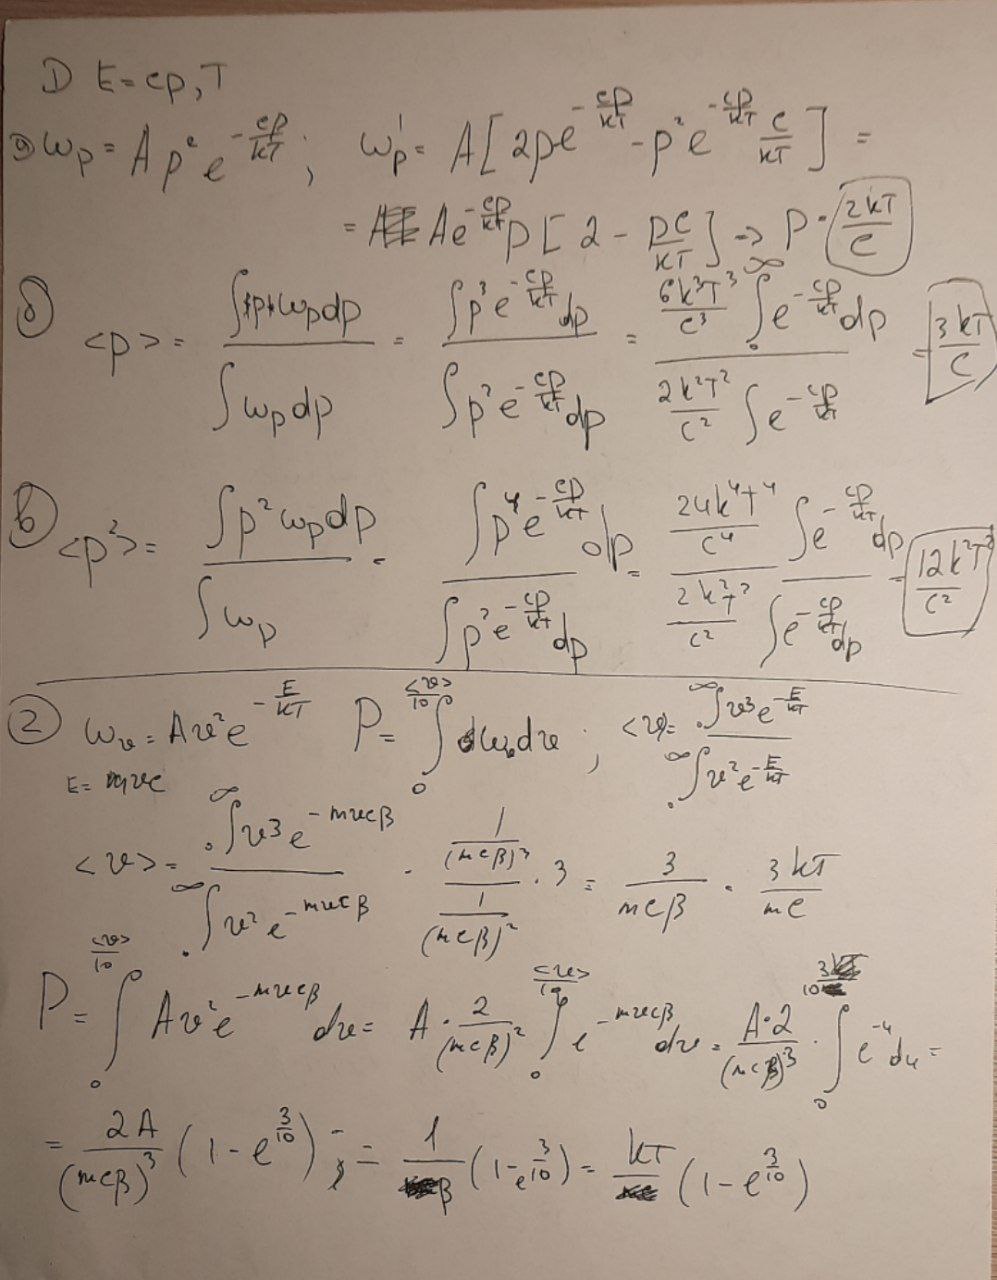 1) E = cp, T
а) ω_p = A p² e^{-cp/kT} ; ω'_p = A [ 2p e^{-cp/kT} - p² e^{-cp/kT} c/kT ] =
= A e^{-cp/kT} p [ 2 - pc/kT ] => p = 2kT/c
б) <p> = ∫ p ω_p dp / ∫ ω_p dp = ∫ p³ e^{-cp/kT} dp / ∫ p² e^{-cp/kT} dp = (6k³T³/c³) ∫_0^∞ e^{-cp/kT} dp / (2k²T²/c²) ∫ e^{-cp/kT} = 3kT/c
в) <p²> = ∫ p² ω_p dp / ∫ ω_p = ∫ p⁴ e^{-cp/kT} dp / ∫ p² e^{-cp/kT} dp = (24k⁴T⁴/c⁴) / (2k²T²/c²) ∫ e^{-cp/kT} dp / ∫ e^{-cp/kT} dp = 12k²T²/c²
2) ω_v = A v² e^{-E/kT} P = ∫_0^{<v>/10} ω_v dv ; <v> = ∫_0^∞ v³ e^{-E/kT} / ∫_0^∞ v² e^{-E/kT}
E = mvc
<v> = ∫_0^∞ v³ e^{-mvcβ} / ∫_0^∞ v² e^{-mvcβ} = (1/(mcβ)³) / (1/(mcβ)²) · 3 = 3/(mcβ) = 3kT/mc
P = ∫_0^{<v>/10} A v² e^{-mvcβ} dv = A · 2/(mcβ)² ∫_0^{<v>/10} e^{-mvcβ} dv = A·2/(mcβ)³ · ∫_0^{3/10} e^{-u} du =
= 2A/(mcβ)³ (1 - e^{3/10}) ; = 1/β (1 - e^{3/10}) = kT (1 - e^{3/10})